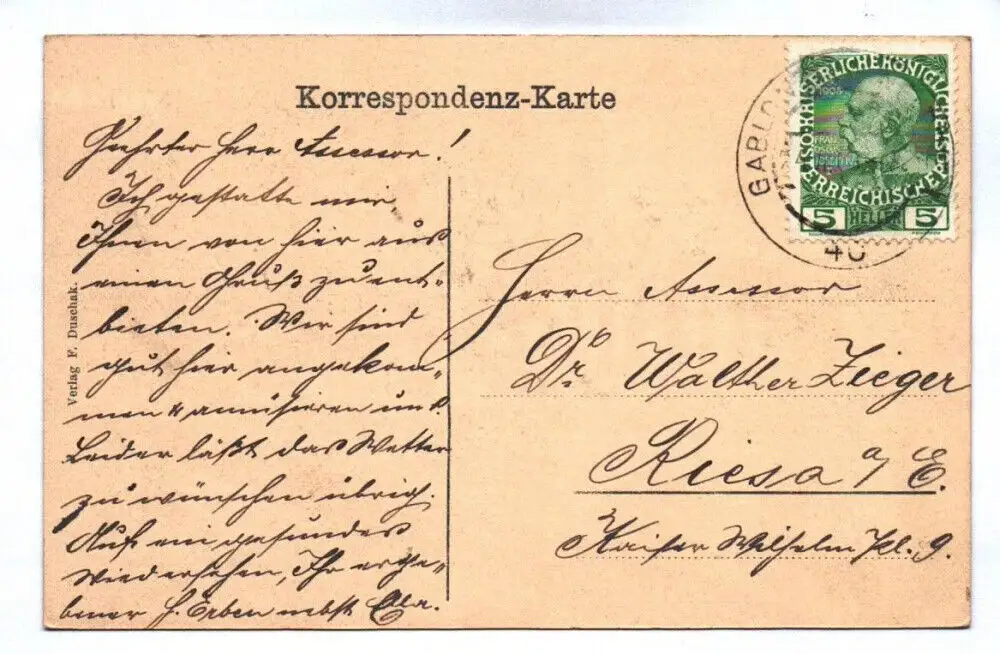 Korrespondenz-Karte
Geehrter Herr Assessor!
Ich gestatte mir
Ihnen von hier aus
einen Gruß zu ent-
bieten. Wir sind
gut hier angekom-
men u amüsieren uns.
Leider läßt das Wetter
zu wünschen übrig.
Auf ein gesundes
Wiedersehen, Ihr erge-
bener Erben nebst
Verlag F. Duschak.
GABLON
40
KAISERLICHEKÖNIGLICHE ÖSTERREICHISCHE POST
1908
5 HELLER 5
Herrn Assessor
Dr. Walther Zieger
Riesa a/E.
Kaiser Wilhelm Pl. 9.